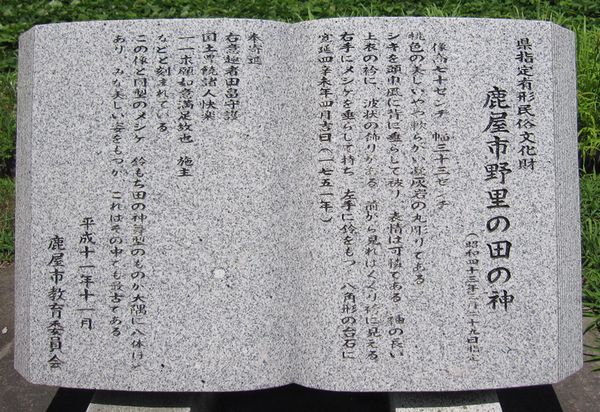 県指定有形民俗文化財
鹿屋市野里の田の神
(昭和四十三年三月二十九日指定)
像高七十センチ 幅三十三センチ
桃色の美しいやや軟らかい凝灰岩の丸彫りである
シキを頭巾風に背に垂らして被り 表情は可憐である 袖の長い
上衣の衿に 波状の飾りがある 前から見ればくくり袴に見える
右手にメシゲを垂らして持ち 左手に鈴をもつ 八角形の台石に
寛延四辛未年四月吉日(一七五一年)
奉寄進
右意趣者田畠守護
国土豊饒諸人快楽
一一求願如意満足故也 施主
などと刻まれている
この像と同型のメシゲ 鈴もち田の神舞型のものが大隅に八体ほど
あり みな美しい姿をもつが これはその中でも最古である
平成十一年十一月
鹿屋市教育委員会